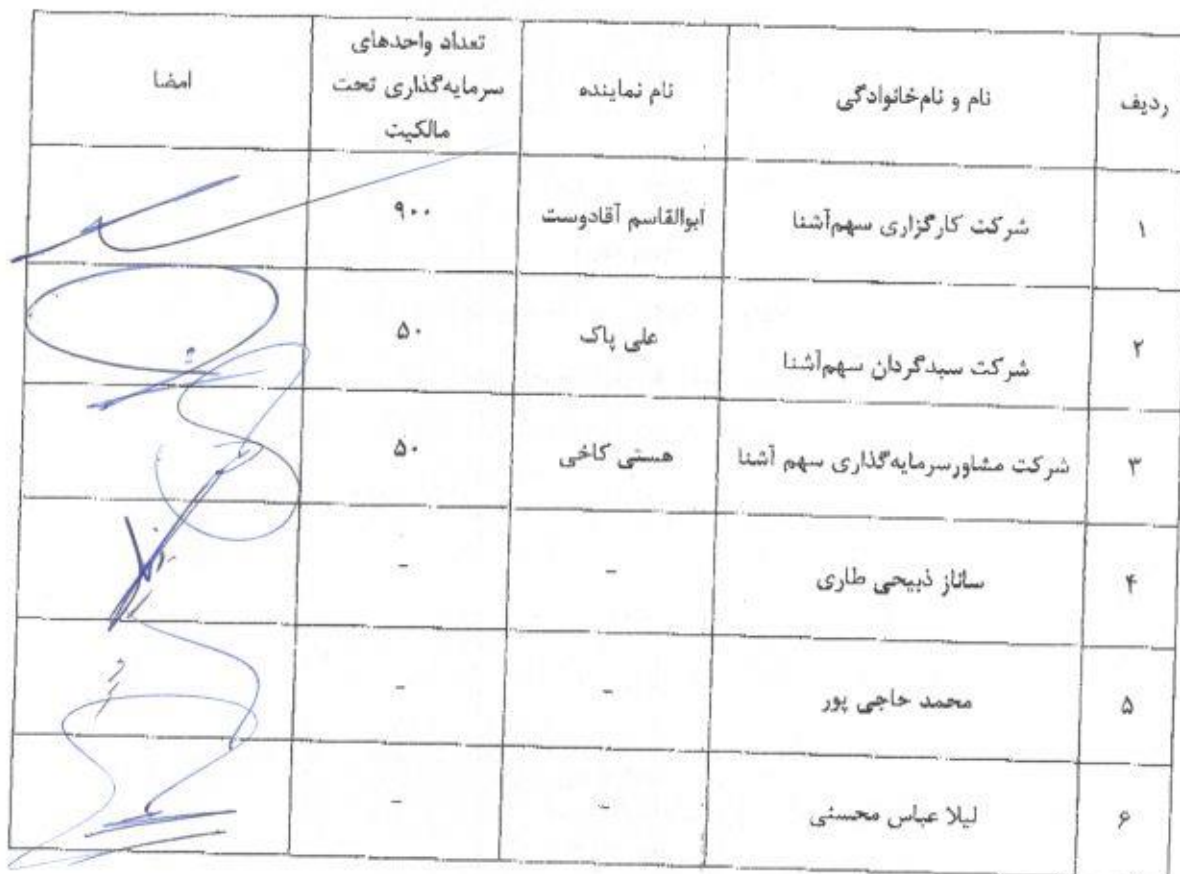 ردیف نام و نام‌خانوادگی نام نماینده تعداد واحدهای سرمایه‌گذاری تحت مالکیت امضا
۱ شرکت کارگزاری سهم‌آشنا ابوالقاسم آقادوست ۹۰۰
۲ شرکت سبدگردان سهم‌آشنا علی پاک ۵۰
۳ شرکت مشاورسرمایه‌گذاری سهم آشنا هستی کاخی ۵۰
۴ ساناز ذبیحی طاری - -
۵ محمد حاجی پور - -
۶ لیلا عباس محسنی - -